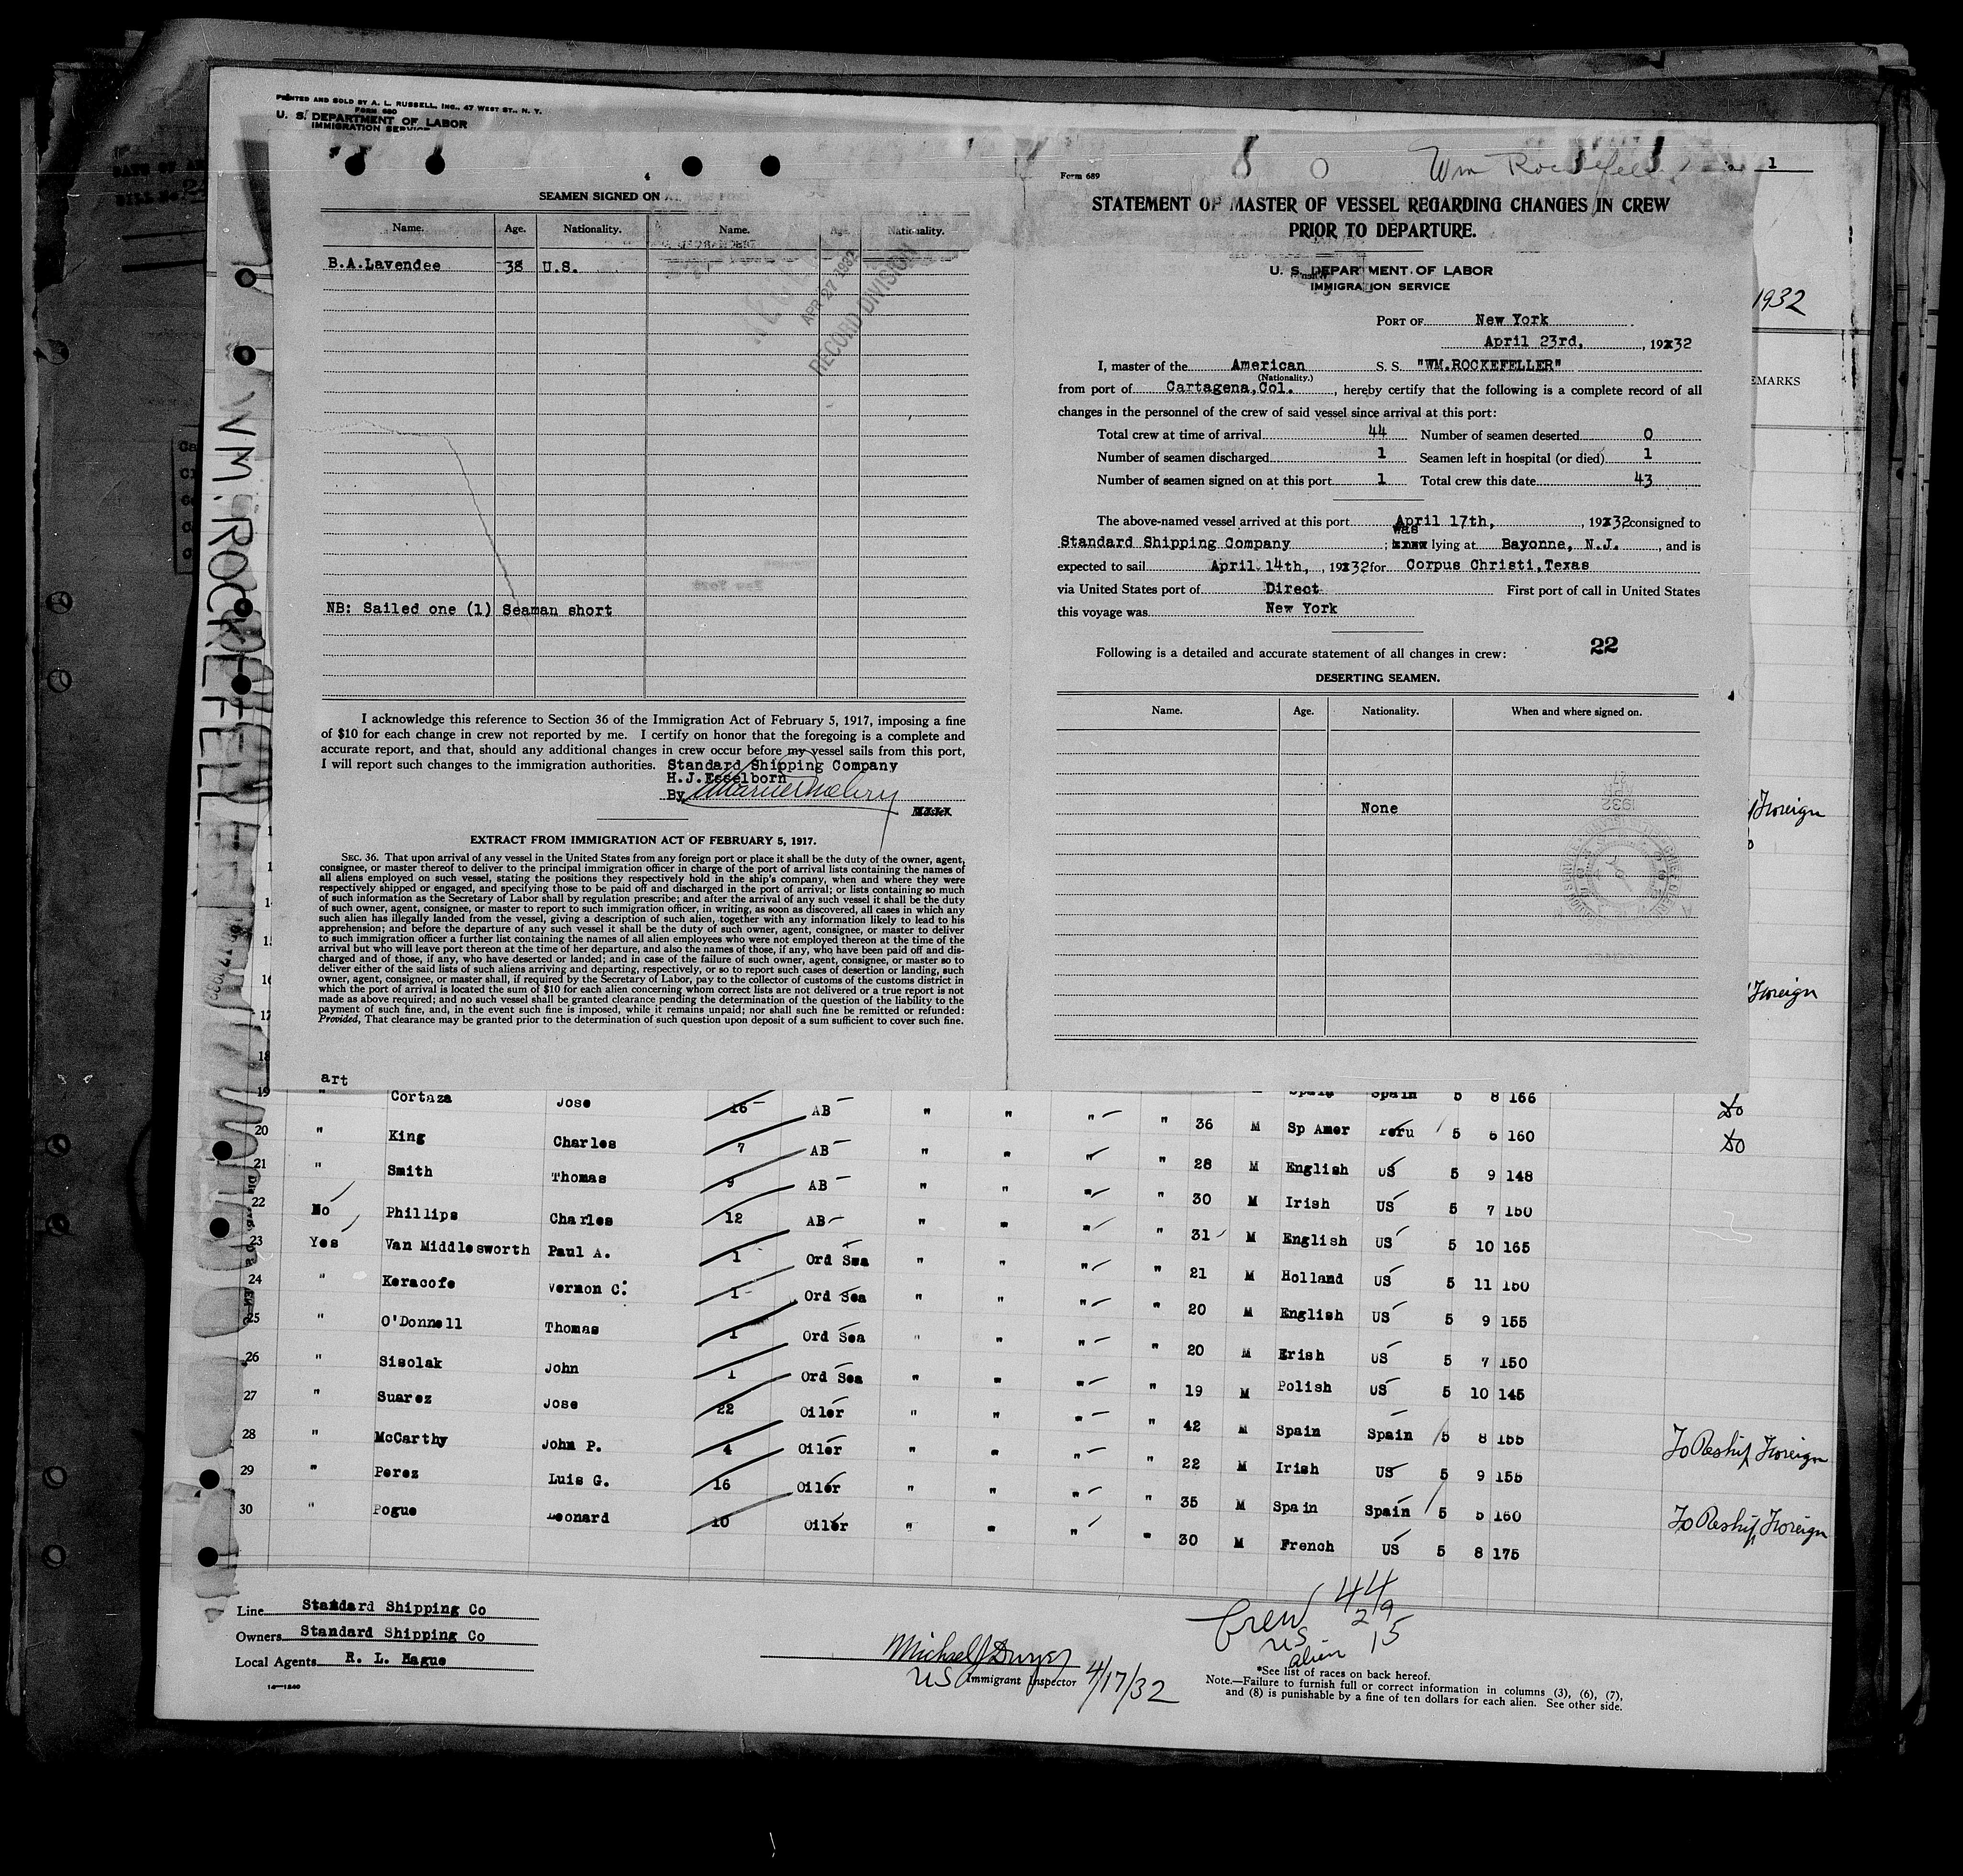 PRINTED AND SOLD BY A. L. RUSSELL, INC., 47 WEST ST., N. Y.
FORM 680
U. S. DEPARTMENT OF LABOR
IMMIGRATION SERVICE
WM. ROCKEFELLER
SEAMEN SIGNED ON
Name. Age. Nationality. Name. Age. Nationality.
B.A.Lavendee 38 U.S.
APR 27 1932
RECORD DIVISION
NB: Sailed one (1) Seaman short
I acknowledge this reference to Section 36 of the Immigration Act of February 5, 1917, imposing a fine
of $10 for each change in crew not reported by me. I certify on honor that the foregoing is a complete and
accurate report, and that, should any additional changes in crew occur before my vessel sails from this port,
I will report such changes to the immigration authorities. Standard Shipping Company
H.J.Esselborn
By
EXTRACT FROM IMMIGRATION ACT OF FEBRUARY 5, 1917.
SEC. 36. That upon arrival of any vessel in the United States from any foreign port or place it shall be the duty of the owner, agent,
consignee, or master thereof to deliver to the principal immigration officer in charge of the port of arrival lists containing the names of
all aliens employed on such vessel, stating the positions they respectively hold in the ship's company, when and where they were
respectively shipped or engaged, and specifying those to be paid off and discharged in the port of arrival; or lists containing so much
of such information as the Secretary of Labor shall by regulation prescribe; and after the arrival of any such vessel it shall be the duty
of such owner, agent, consignee, or master to report to such immigration officer, in writing, as soon as discovered, all cases in which any
such alien has illegally landed from the vessel, giving a description of such alien, together with any information likely to lead to his
apprehension; and before the departure of any such vessel it shall be the duty of such owner, agent, consignee, or master to deliver
to such immigration officer a further list containing the names of all alien employees who were not employed thereon at the time of the
arrival but who will leave port thereon at the time of her departure, and also the names of those, if any, who have been paid off and dis-
charged and of those, if any, who have deserted or landed; and in case of the failure of such owner, agent, consignee, or master so to
deliver either of the said lists of such aliens arriving and departing, respectively, or so to report such cases of desertion or landing, such
owner, agent, consignee, or master shall, if required by the Secretary of Labor, pay to the collector of customs of the customs district in
which the port of arrival is located the sum of $10 for each alien concerning whom correct lists are not delivered or a true report is not
made as above required; and no such vessel shall be granted clearance pending the determination of the question of the liability to the
payment of such fine, and, in the event such fine is imposed, while it remains unpaid; nor shall such fine be remitted or refunded:
Provided, That clearance may be granted prior to the determination of such question upon deposit of a sum sufficient to cover such fine.
art
Form 689
Wm Rockefeller
1
STATEMENT OF MASTER OF VESSEL REGARDING CHANGES IN CREW
PRIOR TO DEPARTURE.
U. S. DEPARTMENT OF LABOR
IMMIGRATION SERVICE
1932
PORT OF New York
April 23rd, , 19332
I, master of the American S. S. "WM.ROCKEFELLER"
(Nationality.)
from port of Cartagena,Col. , hereby certify that the following is a complete record of all
EMARKS
changes in the personnel of the crew of said vessel since arrival at this port:
Total crew at time of arrival 44 Number of seamen deserted 0
Number of seamen discharged 1 Seamen left in hospital (or died) 1
Number of seamen signed on at this port 1 Total crew this date 43
The above-named vessel arrived at this port April 17th, , 19332 consigned to
was
Standard Shipping Company ; lying at Bayonne, N.J. , and is
expected to sail April 14th, , 19332 for Corpus Christi,Texas
via United States port of Direct First port of call in United States
this voyage was New York
Following is a detailed and accurate statement of all changes in crew: 22
DESERTING SEAMEN.
Name. Age. Nationality. When and where signed on.
None
Foreign
Foreign
18
19 " Cortaza Jose 16 AB " " " " Spain Spain 5 8 166 do
20 " King Charles 7 AB " " " " 36 M Sp Amer Peru 5 6 160 do
21 " Smith Thomas 9 AB " " " " 28 M English US 5 9 148
22 No Phillips Charles 12 AB " " " " 30 M Irish US 5 7 150
23 Yes Van Middlesworth Paul A. 1 Ord Sea " " " " 31 M English US 5 10 165
24 " Keracofe Vernon C. 1 Ord Sea " " " " 21 M Holland US 5 11 150
25 " O'Donnell Thomas 1 Ord Sea " " " " 20 M English US 5 9 155
26 " Sisolak John 1 Ord Sea " " " " 20 M Erish US 5 7 150
27 " Suarez Jose 22 Oiler " " " " 19 M Polish US 5 10 145
28 " McCarthy John P. 4 Oiler " " " " 42 M Spain Spain 5 8 155 To Reship Foreign
29 " Perez Luis G. 16 Oiler " " " " 22 M Irish US 5 9 155
30 " Pogue Leonard 10 Oiler " " " " 35 M Spain Spain 5 5 160 To Reship Foreign
30 M French US 5 8 175
Line Standard Shipping Co
Owners Standard Shipping Co
Local Agents R. L. Hague
14—1240
Michael J Dwyer
US Immigrant Inspector 4/17/32
Crew 44
US 29
alien 15
*See list of races on back hereof.
Note.—Failure to furnish full or correct information in columns (3), (6), (7),
and (8) is punishable by a fine of ten dollars for each alien. See other side.